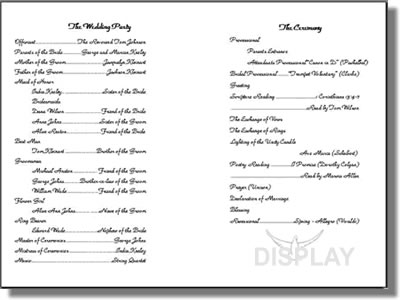 The Wedding Party
Officiant The Reverend Tom Johnson
Parents of the Bride George and Marcia Keeley
Mother of the Groom Jacquelyn Kleinert
Father of the Groom Jackson Kleinert
Maid of Honor
India Keeley Sister of the Bride
Bridesmaids
Diana Wilson Friend of the Bride
Anna Johns Sister of the Bride
Alisa Rosten Friend of the Bride
Best Man
Tom Kleinert Brother of the Groom
Groomsmen
Michael Anston Friend of the Groom
George Johns Brother-in-law of the Groom
William Wade Friend of the Groom
Flower Girl
Alisa Ann Johns Niece of the Groom
Ring Bearer
Edward Wade Nephew of the Bride
Master of Ceremonies George Johns
Mistress of Ceremonies India Keeley
Music String Quartet
The Ceremony
Processional
Parents Entrance
Attendants Processional "Canon in D" (Pachelbel)
Bridal Processional "Trumpet Voluntary" (Clarke)
Greeting
Scripture Reading I Corinthians 13:4-7
Read by Tom Wilson
The Exchange of Vows
The Exchange of Rings
Lighting of the Unity Candle
Ave Maria (Schubert)
Poetry Reading I Promise (Dorothy Colgan)
Read by Marissa Allen
Prayer (Unison)
Declaration of Marriage
Blessing
Recessional Spring - Allegro (Vivaldi)
DISPLAY